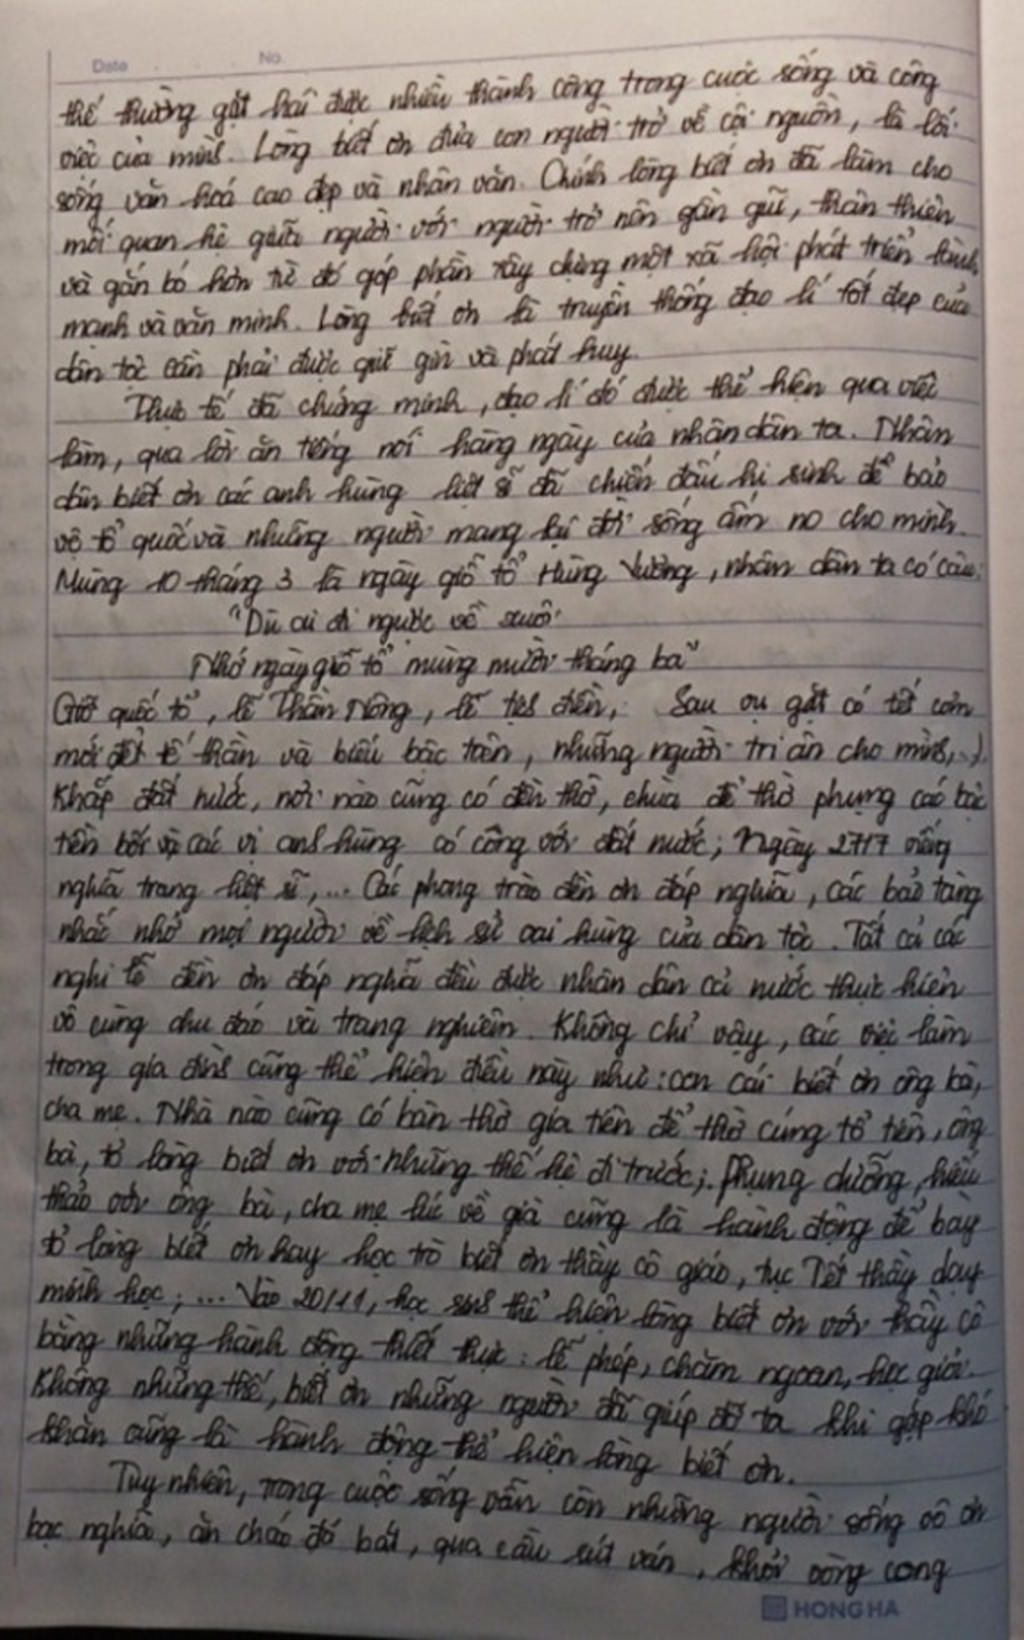 Date No.
thế thường gặt hái được nhiều thành công trong cuộc sống và công
việc của mình. Lòng biết ơn đưa con người trở về cội nguồn, là lối
sống văn hoá cao đẹp và nhân văn. Chính lòng biết ơn đã làm cho
mối quan hệ giữa người với người trở nên gần gũi, thân thiện
và gắn bó hơn từ đó góp phần xây dựng một xã hội phát triển lành
mạnh và văn minh. Lòng biết ơn là truyền thống đạo lí tốt đẹp của
dân tộc cần phải được giữ gìn và phát huy.
Thực tế đã chứng minh, đạo lí đó được thể hiện qua việc
làm, qua lời ăn tiếng nói hàng ngày của nhân dân ta. Nhân
dân biết ơn các anh hùng liệt sĩ đã chiến đấu hi sinh để bảo
vệ tổ quốc và những người mang lại đời sống ấm no cho mình.
Mùng 10 tháng 3 là ngày giỗ tổ Hùng Vương, nhân dân ta có câu:
"Dù ai đi ngược về xuôi
Nhớ ngày giỗ tổ mùng mười tháng ba"
Giỗ quốc tổ, lễ Thần Nông, lễ tịch điền, Sau vụ gặt có tết cơm
mới để tế thần và biếu bậc trên, những người tri ân cho mình,
Khắp đất nước, nơi nào cũng có đền thờ, chùa để thờ phụng các bậc
tiền bối và các vị anh hùng có công với đất nước; Ngày 27/7 viếng
nghĩa trang liệt sĩ,... Các phong trào đền ơn đáp nghĩa, các bảo tàng
nhắc nhở mọi người về lịch sử oai hùng của dân tộc. Tất cả các
nghi lễ đền ơn đáp nghĩa đều được nhân dân cả nước thực hiện
vô cùng chu đáo và trang nghiêm. Không chỉ vậy, các việc làm
trong gia đình cũng thể hiện điều này như: con cái biết ơn ông bà,
cha mẹ. Nhà nào cũng có bàn thờ gia tiên để thờ cúng tổ tiên, ông
bà, tỏ lòng biết ơn với những thế hệ đi trước; Phụng dưỡng, hiếu
thảo với ông bà, cha mẹ lúc về già cũng là hành động để bày
tỏ lòng biết ơn hay học trò biết ơn thầy cô giáo, tục Tết thầy dạy
mình học; ... Vào 20/11, học sinh thể hiện lòng biết ơn với thầy cô
bằng những hành động thiết thực: lễ phép, chăm ngoan, học giỏi.
Không những thế, biết ơn những người đã giúp đỡ ta khi gặp khó
khăn cũng là hành động thể hiện lòng biết ơn.
Tuy nhiên, trong cuộc sống vẫn còn những người sống vô ơn
bạc nghĩa, ăn cháo đá bát, qua cầu rút ván, khỏi vòng cong
HONG HA